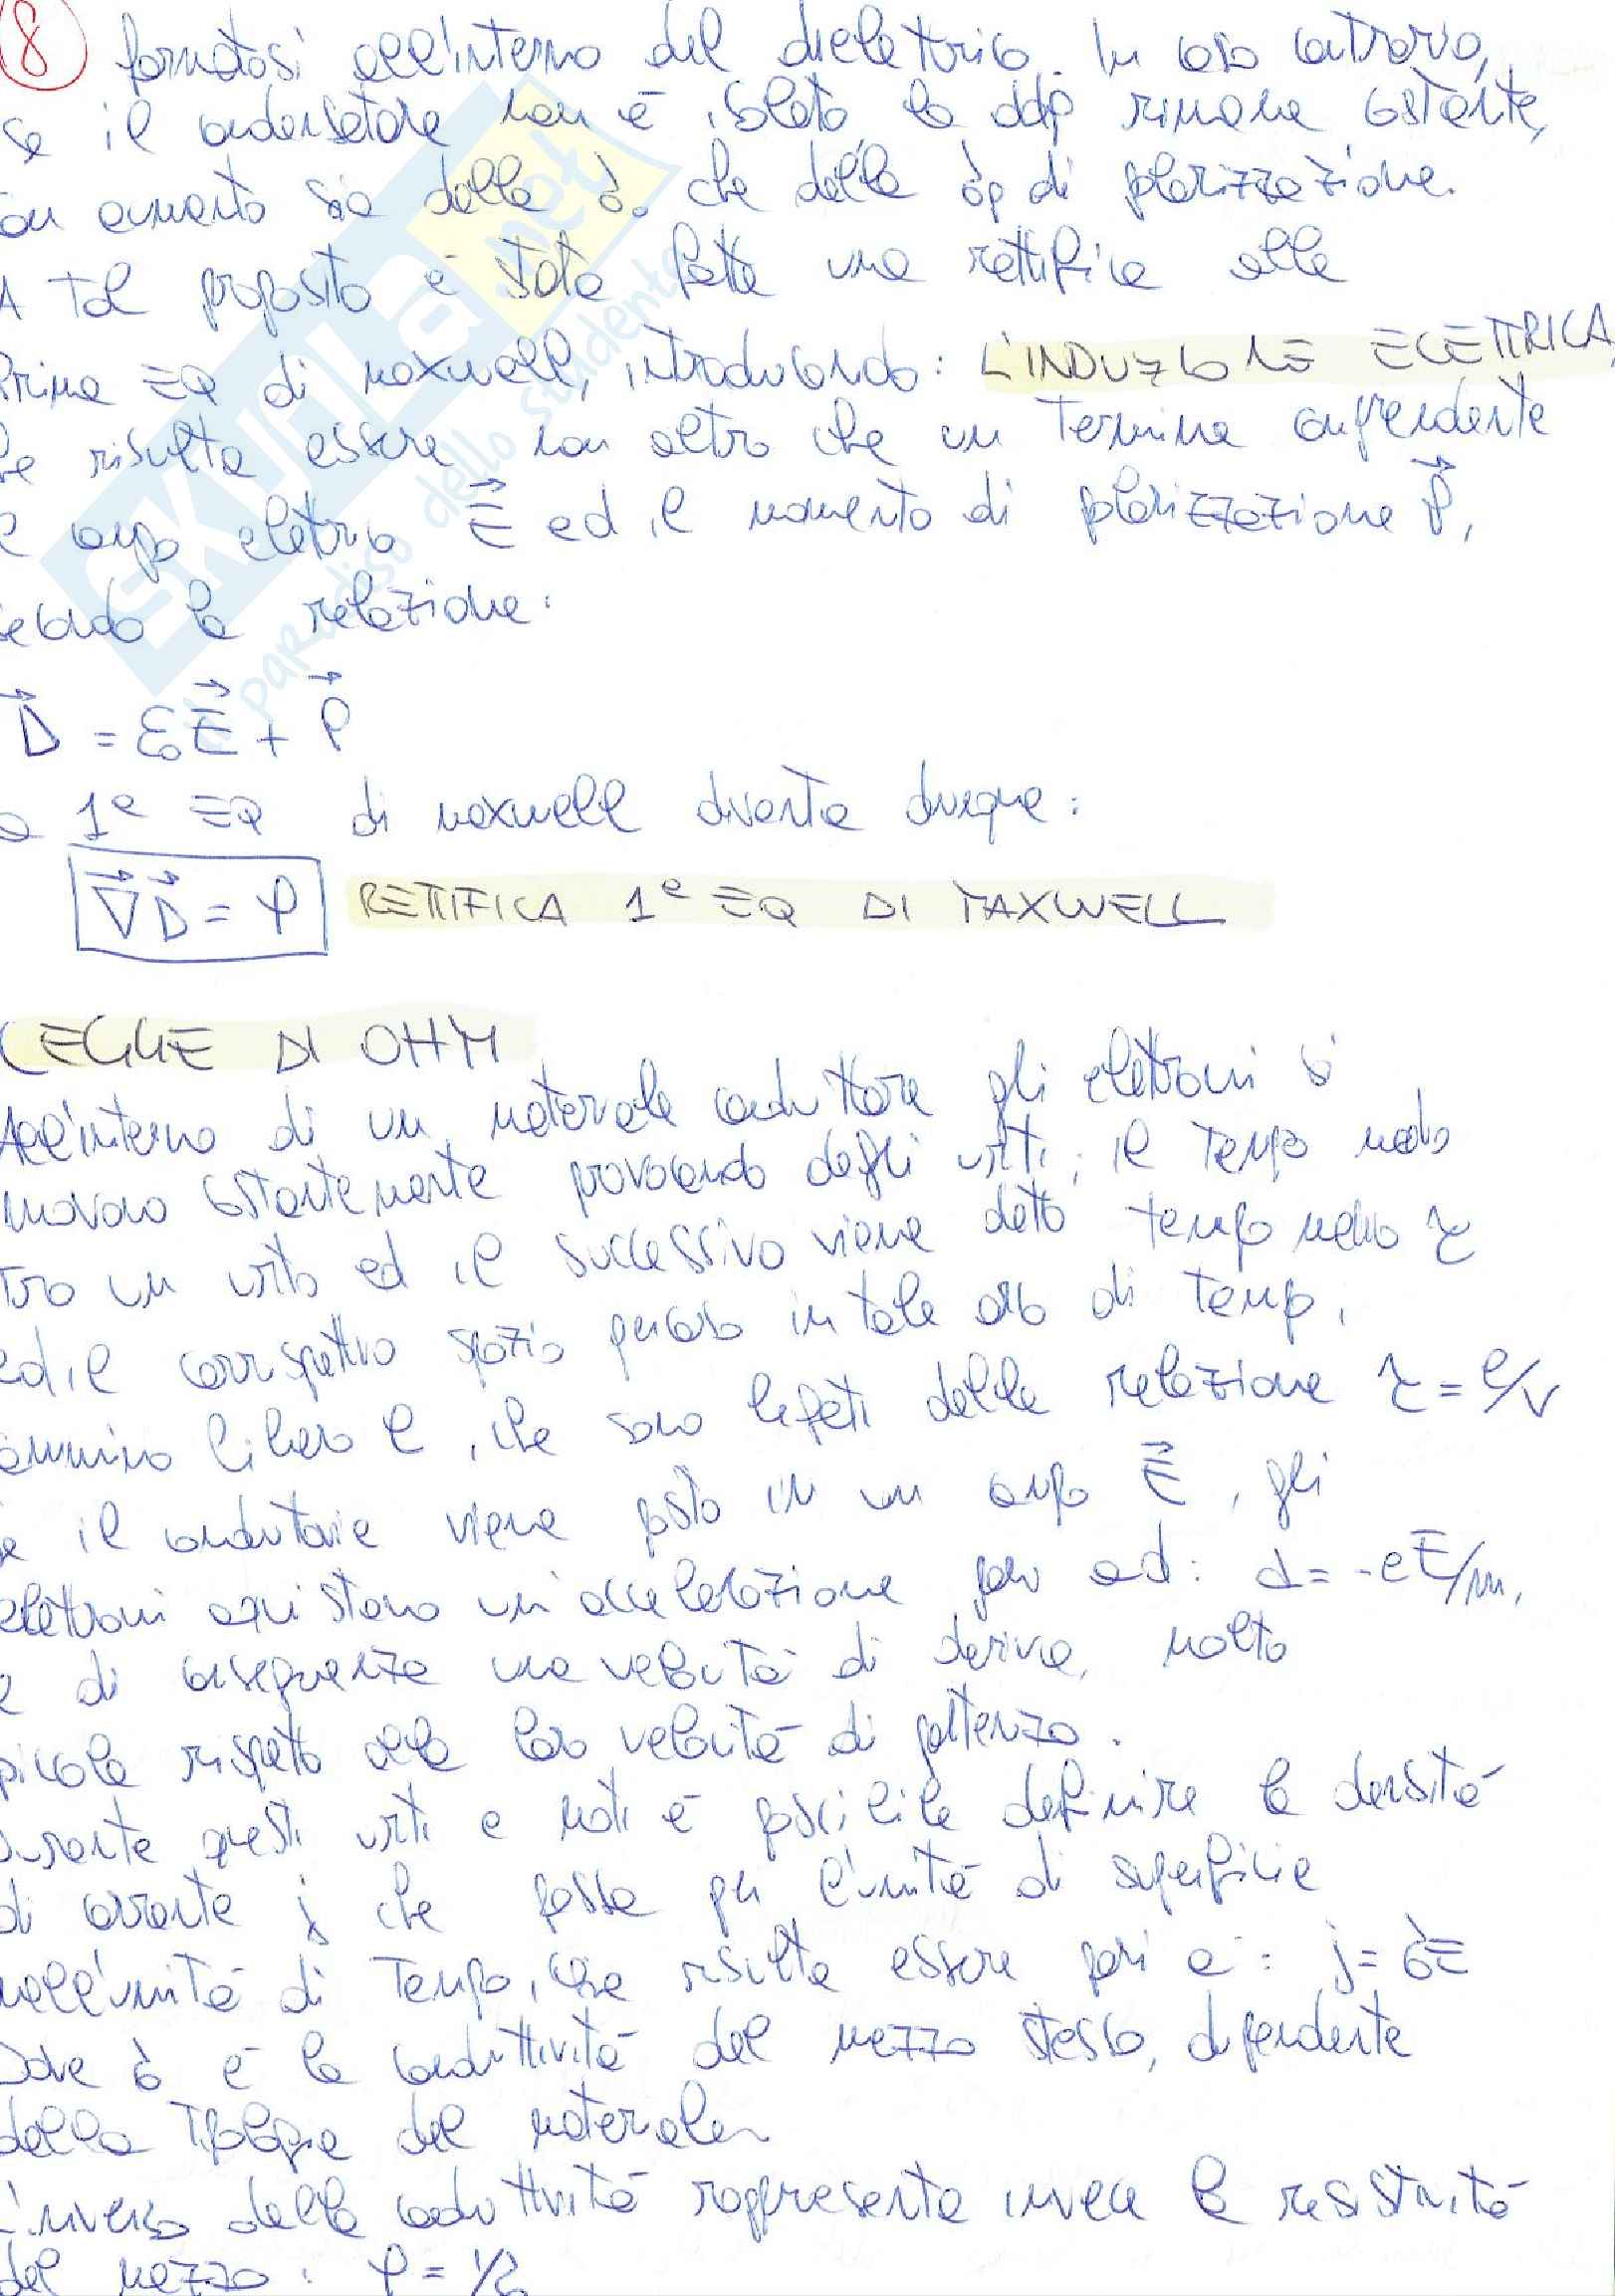 8 formatosi all'interno del dielettrico. In caso contrario,
se il condensatore non è isolato, la ddp rimane costante,
con aumento sia della σ₀ che della σp di polarizzazione.
A tal proposito è stata fatta una rettifica alla
Prima EQ di Maxwell, introducendo: L'INDUZIONE ELETTRICA,
che risulta essere non altro che un termine comprendente
il campo elettrico E⃗ ed il momento di polarizzazione P⃗,
secondo la relazione:
D⃗ = ε₀E⃗ + P⃗
la 1ª EQ di Maxwell diventa dunque:
∇⃗D⃗ = ρ RETTIFICA 1ª EQ DI MAXWELL
LEGGE DI OHM
All'interno di un materiale conduttore gli elettroni si
muovono costantemente provocando degli urti; il tempo medio
tra un urto ed il successivo viene detto tempo medio τ
ed il corrispettivo spazio percorso in tale arco di tempo,
cammino libero l, che sono legati dalla relazione τ = l/v
se il conduttore viene posto in un campo E⃗, gli
elettroni acquistano un'accelerazione pari ad: a = -eE/m,
e di conseguenza una velocità di deriva, molto
piccola rispetto alla loro velocità di partenza.
Durante questi urti e moti è possibile definire la densità
di corrente j che passa per l'unità di superficie
nell'unità di tempo, che risulta essere pari a: j = σE
Dove σ è la conduttività del mezzo stesso, dipendente
dalla tipologia del materiale
L'inverso della conduttività rappresenta invece la resistività
del mezzo: ρ = 1/σ
SKUOLA.net
il paradiso dello studente